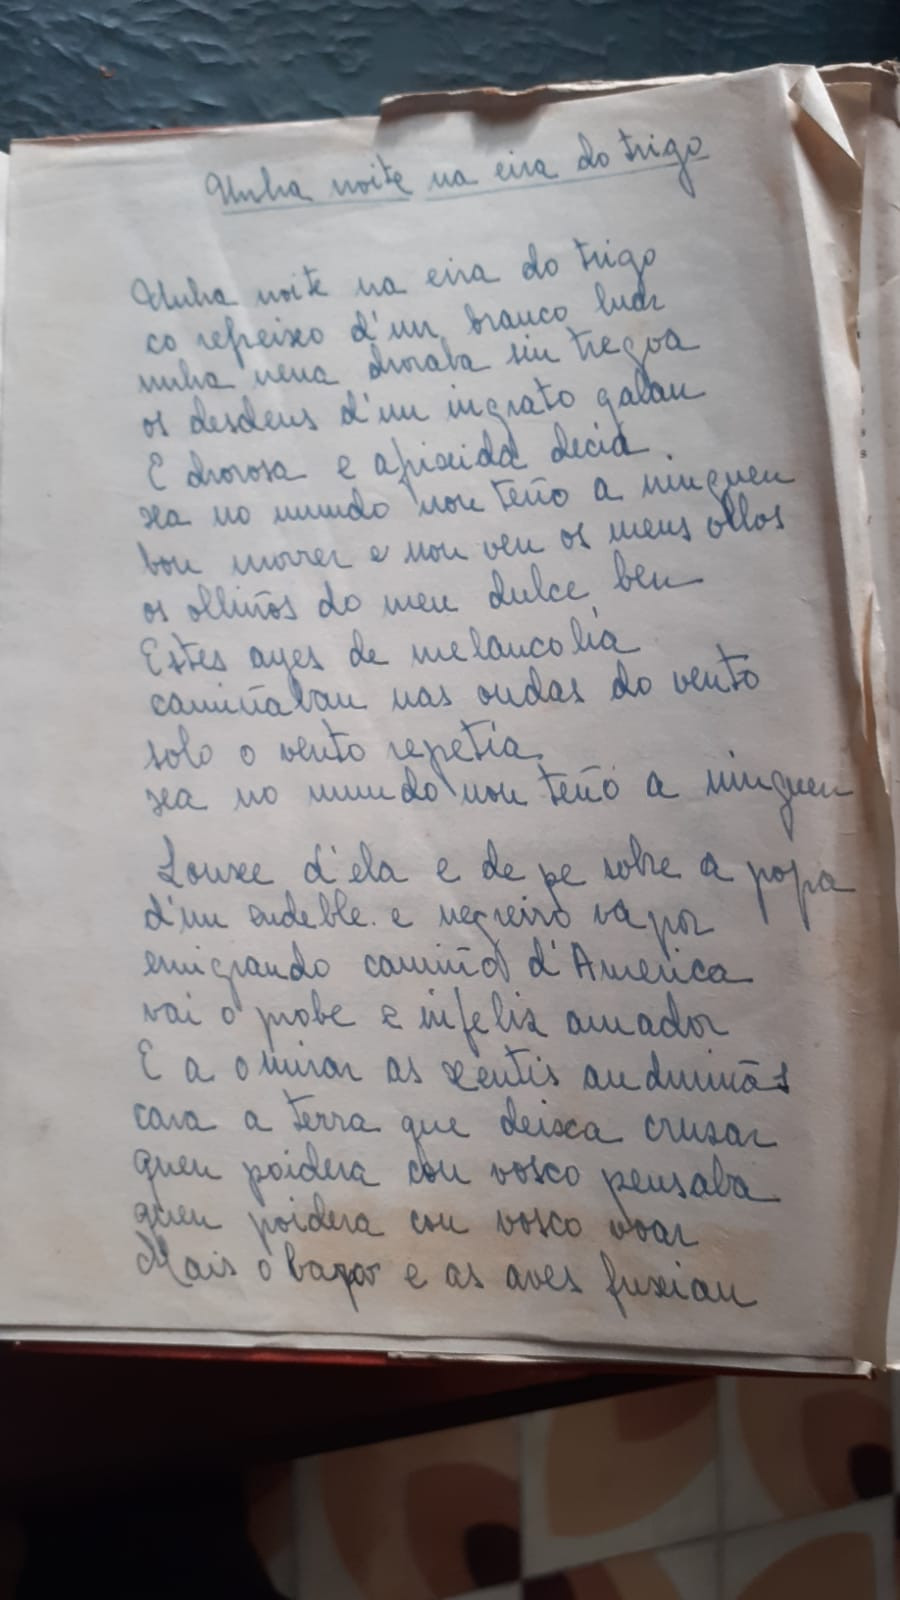 Unha noite na eira do trigo
Unha noite na eira do trigo
co refreixo d'un branco luar
unha nena choraba sin tregoa
os desdens d'un ingrato galan
E chorosa e afixida decia
xa no mundo non teño a ninguen
bou morrer e non ven os meus ollos
os olliños do meu dulce ben
Estes ayes de melancolia
camiñaban nas ondas do vento
solo o vento repetia
xa no mundo non teño a ninguen
Louxe d'ela e de pe sobre a popa
d'un endeble e negreiro vapor
emigrando camiño d'America
vai o probe e infelix amador
E a o mirar as xentis anduriñas
cara a terra que deixa crusar
quen poidera con vosco pensaba
quen poidera con vosco voar
Mais o bapor e as aves fuxian